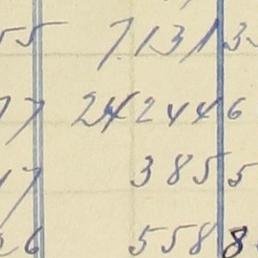 55 7.131 3
77 242446
17 385 5
26 558 8